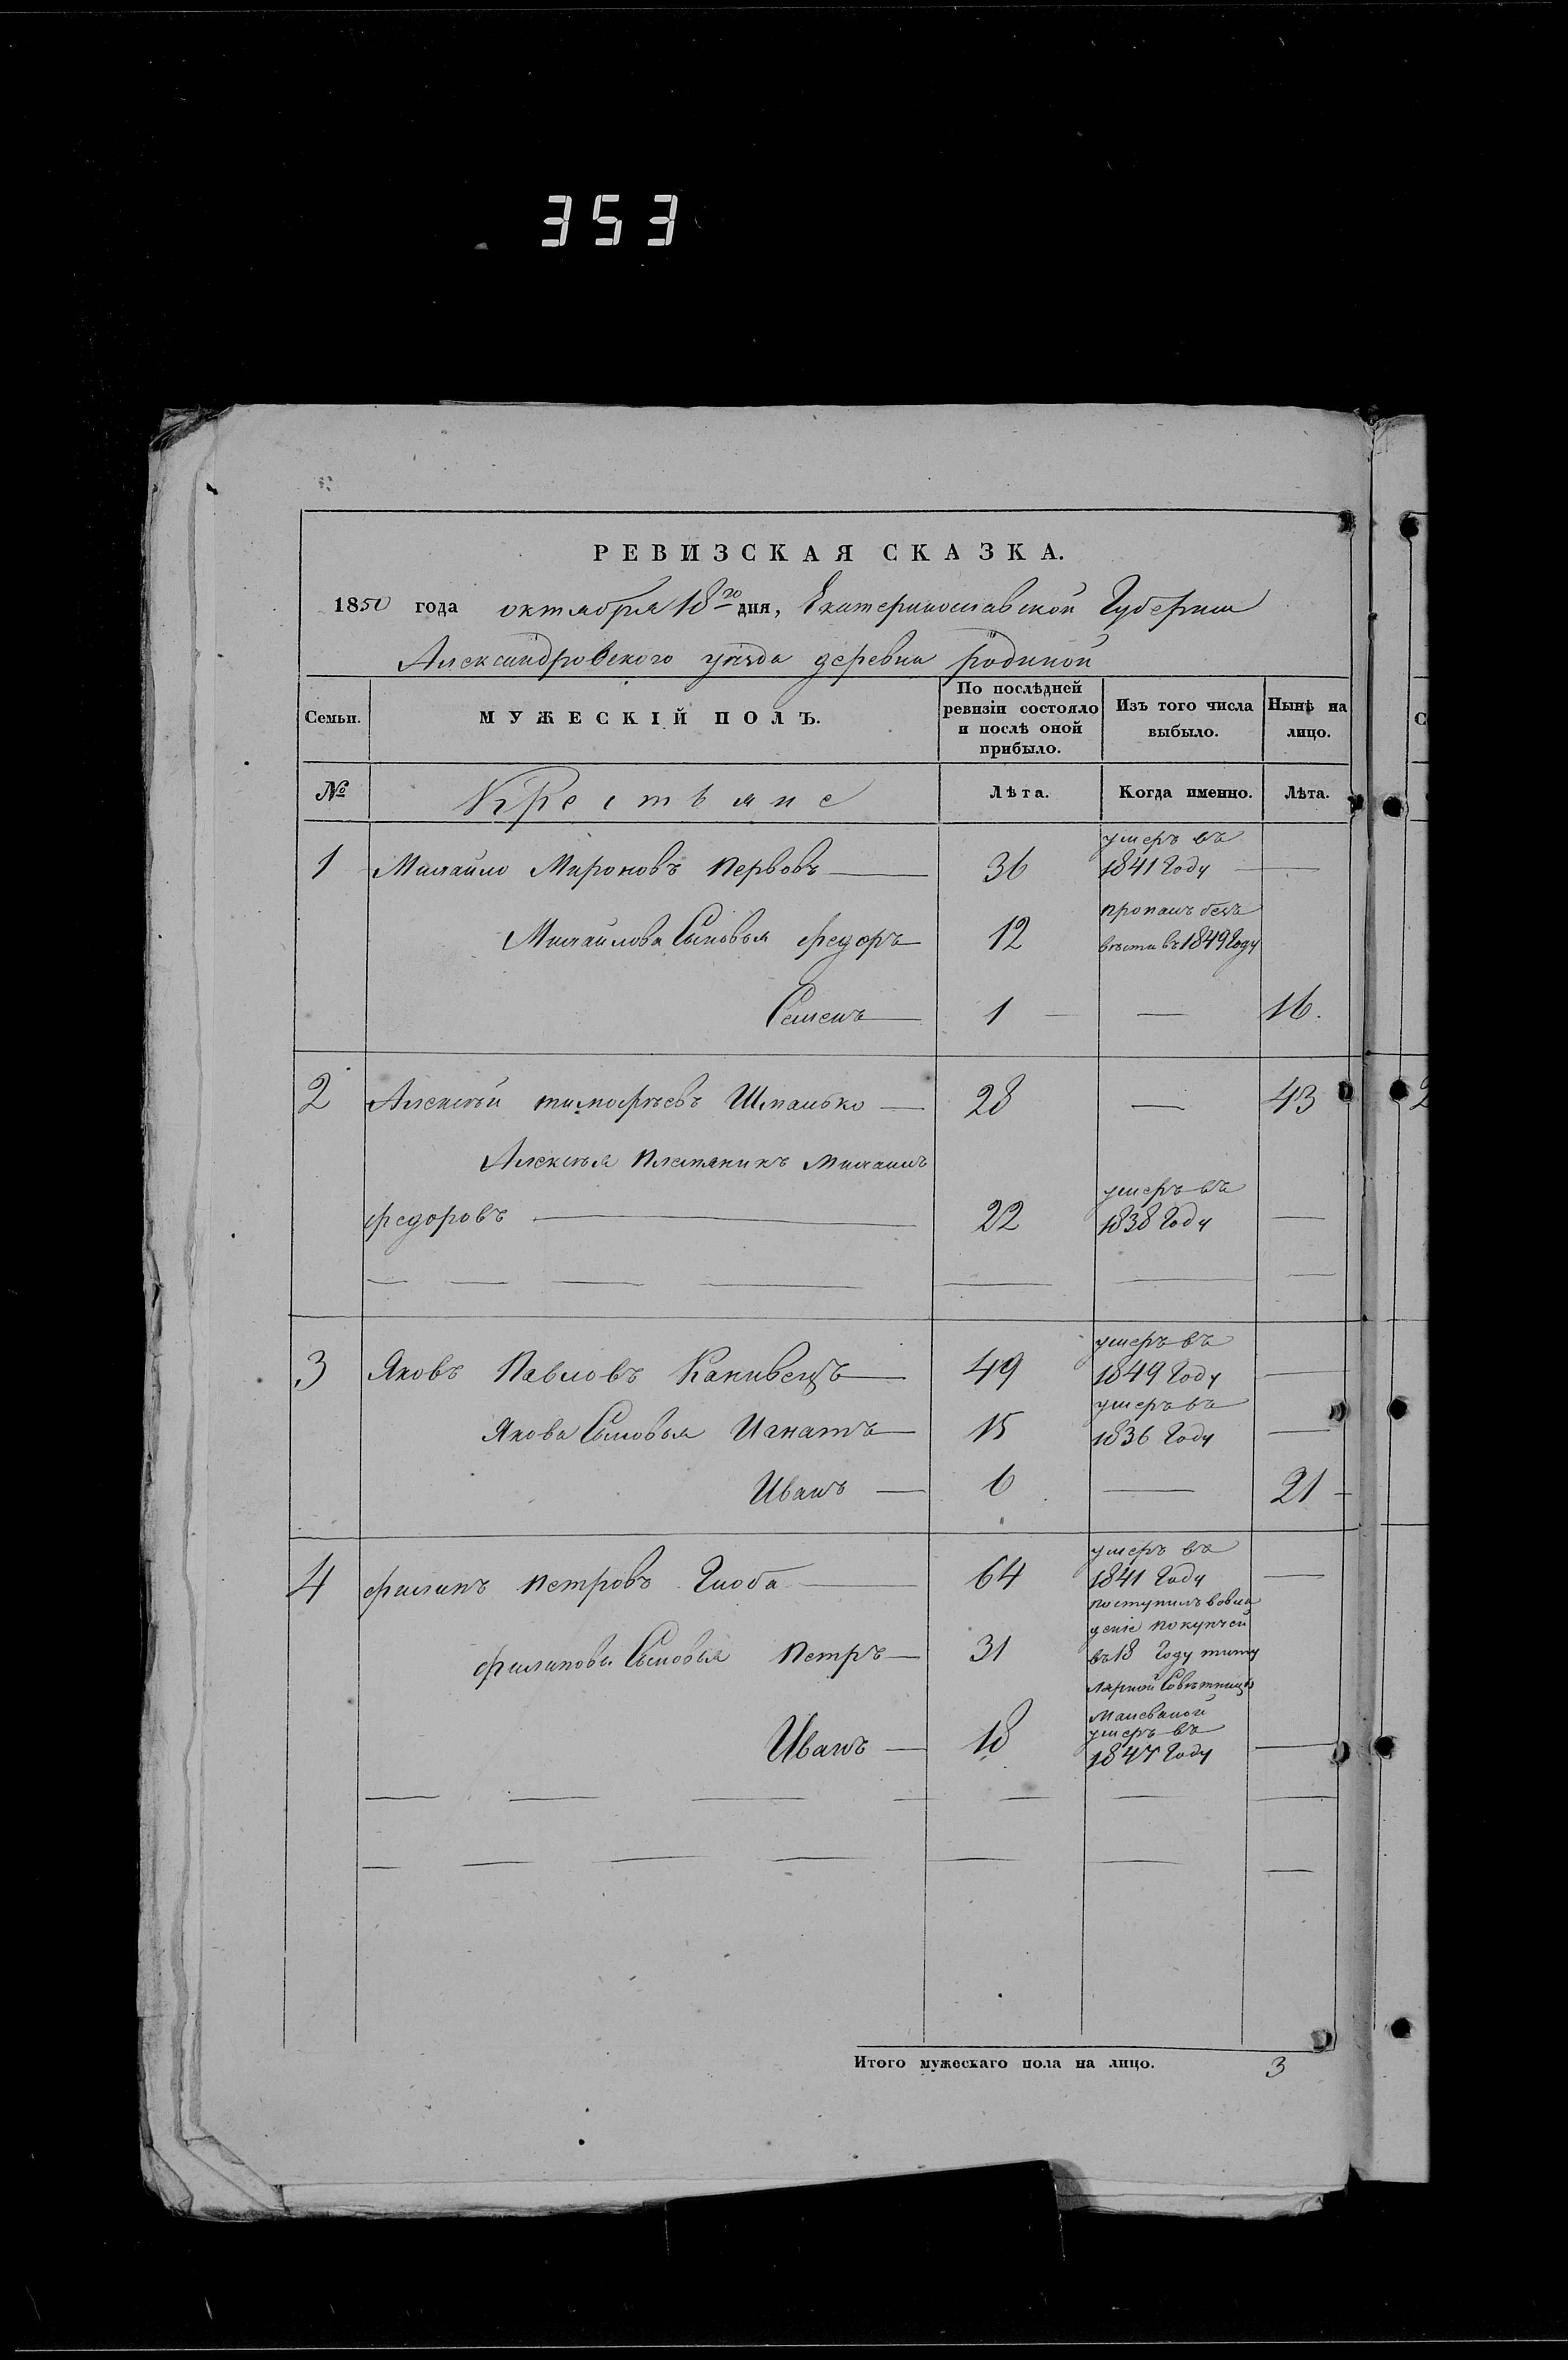 353
РЕВИЗСКАЯ СКАЗКА.
1850 года октября 18го дня, Екатеринославской Губернии
Александровского уѣзда деревни родиной
Семьи. МУЖЕСКІЙ ПОЛЪ. По послѣдней ревизіи состояло и послѣ оной прибыло. Изъ того числа выбыло. Нынѣ на лицо.
№ Крестьяне Лѣта. Когда именно. Лѣта.
1 Михайло Мироновъ Первовъ 36 умеръ въ 1841 Году —
Михайлова Сыновья Федоръ 12 пропалъ безъ вѣсти въ 1849 Году
Семенъ 1 — 16.
2 Алексѣй тимофѣевъ Шпанько 28 — 43
Алексѣя Племяникъ Михаилъ
федоровъ 22 умеръ въ 1838 Году —
3 Яковъ Павловъ Канивецъ 49 умеръ въ 1849 Году —
Якова Сыновья Игнатъ 15 умеръ въ 1836 Году —
Иванъ 6 — 21
4 филипъ петровъ Глоба 64 умеръ въ 1841 Году —
филипова Сыновья Петръ 31 поступилъ вовла
деніе покупчей
въ 18 Году титу
лярной Совѣтницѣ
Иванъ 18 умеръ въ 1847 Году —
Итого мужескаго пола на лицо. 3